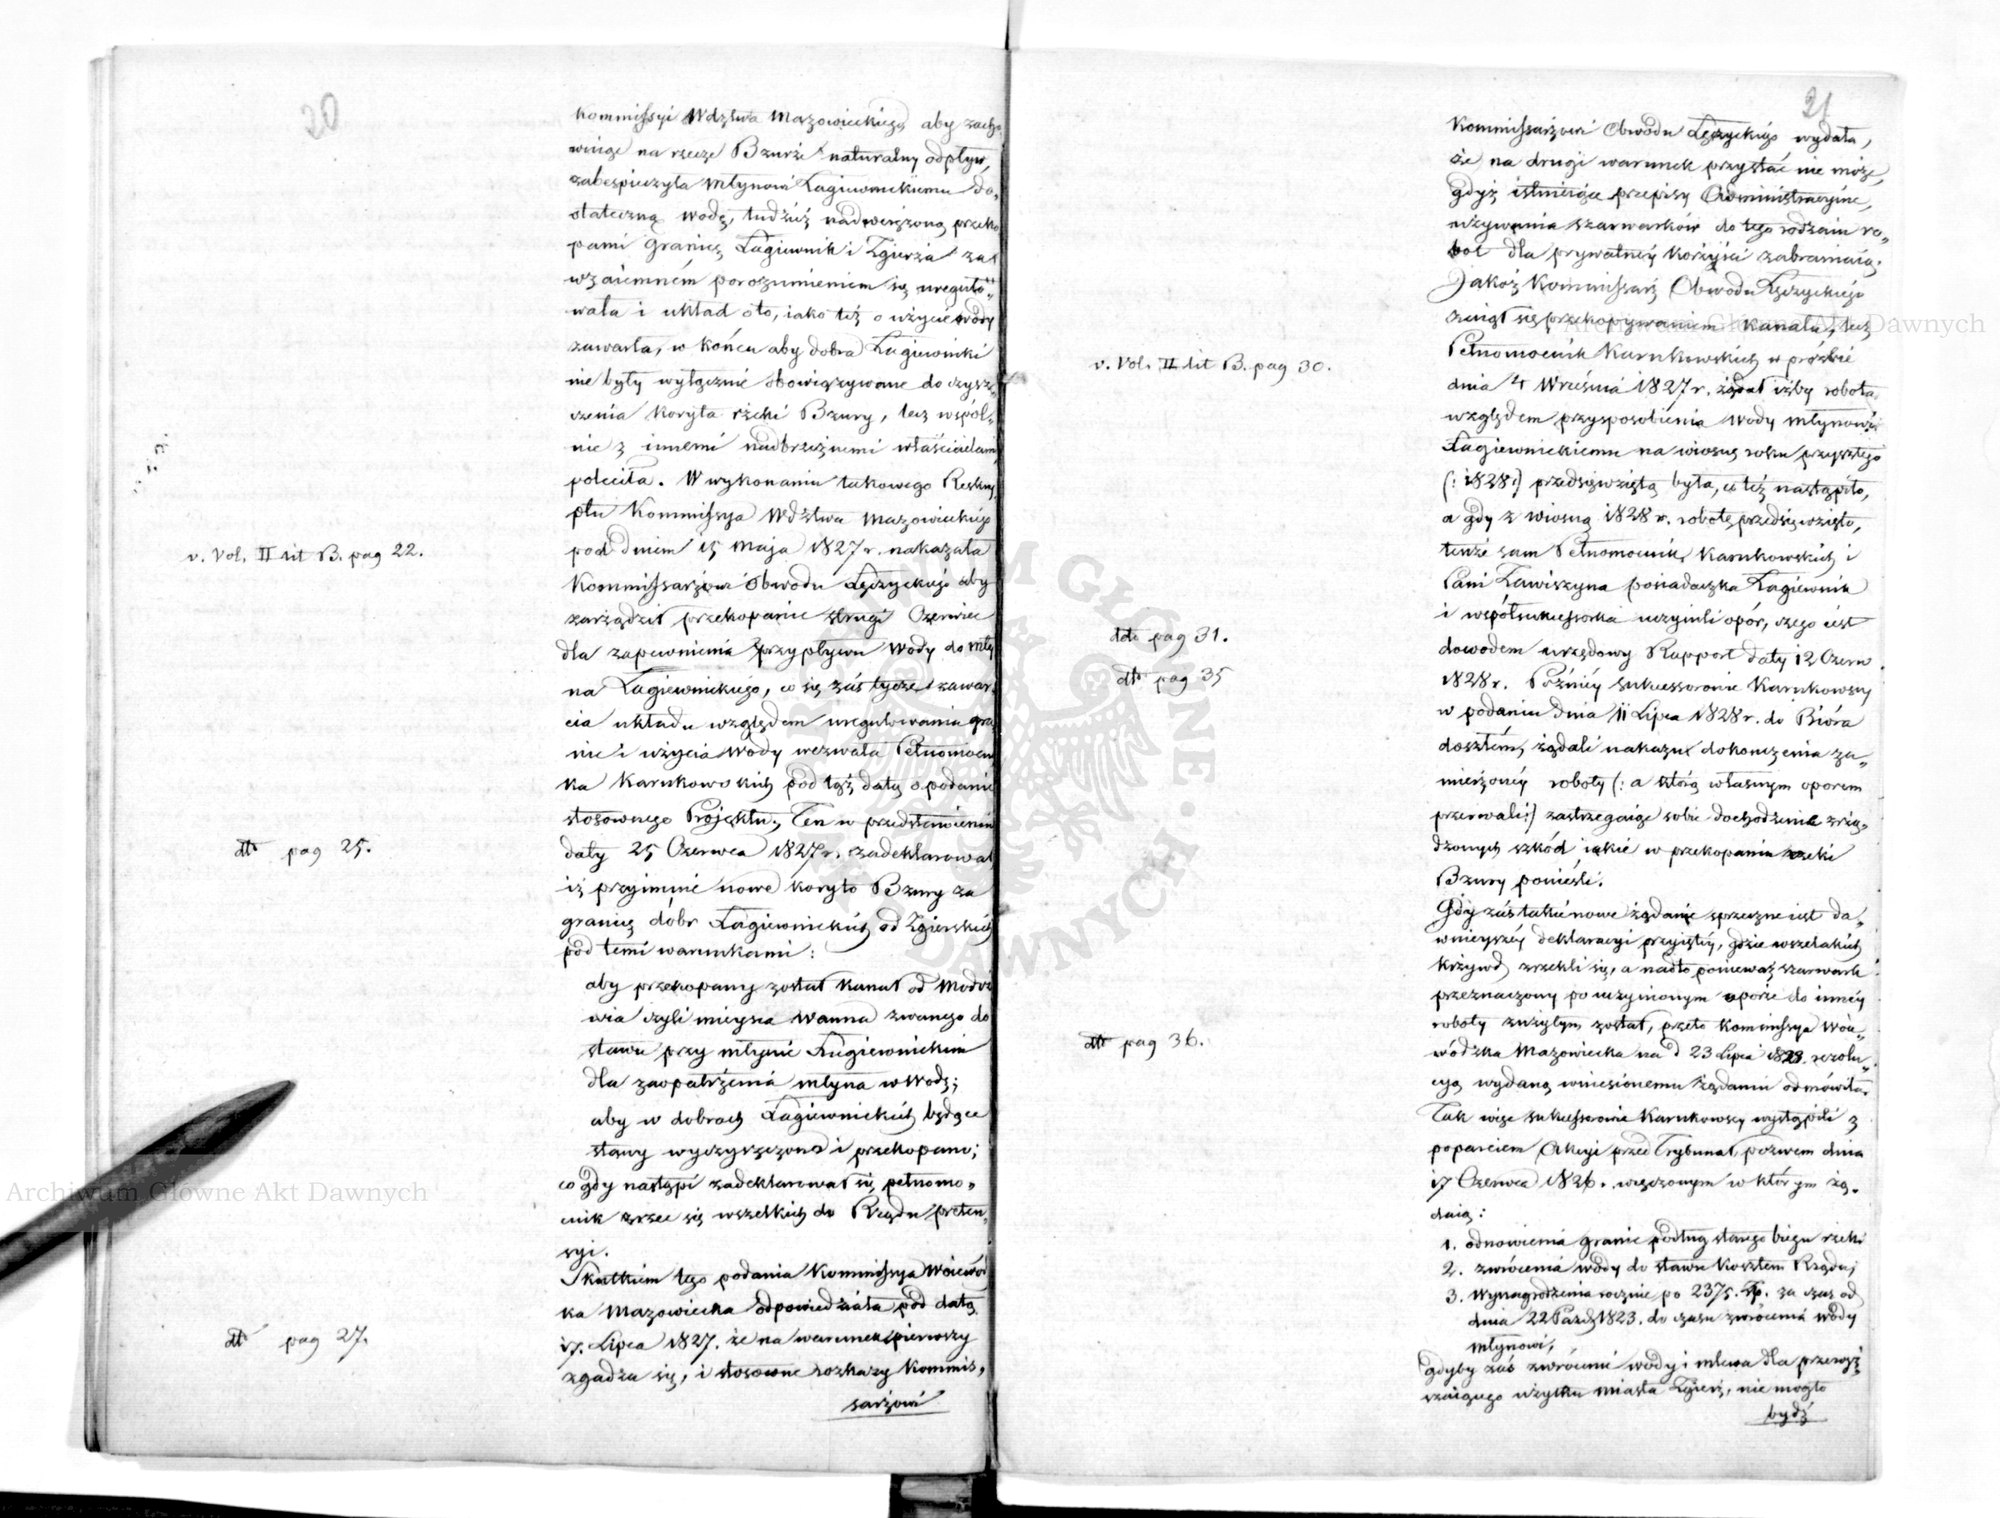 20
Kommissyi Wdztwa Mazowieckiego aby zacho
wuiąc na rzece Bzurze naturalny odpływ,
zabespieczyła Młynowi Łagiewnickiemu do„
stateczną wodę, tudzież nadwerężoną przeko
pami granicę Łagiewnik i Zgierza za
wzaiemném porozumieniem się uregulo„
wała i układ o to, iako też o użycie wody
zawarła, w końcu aby dobra Łagiewniki
nie były wyłącznie obowiązywane do czysz„
czenia koryta rzeki Bzury, lecz wspól„
nie z innemi nadbrzeżnemi właścicielami
poleciła. W wykonaniu takowego Reskry
ptu Kommissya Wdztwa Mazowieckiego
pod dniem 15 Maja 1827 r. nakazała
v. Vol. II lit B. pag 22.
Kommissarzowi Obwodu Łęczyckiego aby
zarządził przekopanie strugi Czerwiec
dla zapewnienia przypływu wody do Mły
na Łagiewnickiego, co się zaś tycze zawar
cia układu względem uregulowania gra
nic i użycia wody wezwała Pełnomocni
ka Karnkowskich pod tąż datą o podanie
stosownego Projektu. Ten w przedstawieniu
daty 25 Czerwca 1827 r. zadeklarował
dtt pag 25.
iż przyimie nowe koryto Bzury za
granicę dóbr Łagiewnickich od Zgierskich
pod temi warunkami:
aby przekopany został kanał od Modrze
wia czyli mieysca Wanna zwanego do
stawu przy młynie Łagiewnickim
dla zaopatrzenia młyna w Wodę;
aby w dobrach Łagiewnickich będące
stawy wyczyszczono i przekopano;
co gdy nastąpi zadeklarował się pełnomo„
cnik zrzec się wszelkich do Rządu preten„
syi.
Skutkiem tego podania Kommissya Woiewódz
ka Mazowiecka odpowiedziała pod datą
17. Lipca 1827. że na warunek pierwszy
dtt pag 27.
zgadza się, i stosowne rozkazy Kommis„
sarzowi
21
Kommissarzowi Obwodu Łęczyckiego wydała,
że na drugi warunek przystać nie może,
gdyż istnieiące przepisy Administracyine,
używania szarwarków do tego rodzaiu ro„
bot dla prywatnéy korzyści zabraniaią.
Jakóż Kommissarz Obwodu Łęczyckiego
zaiął się przekopywaniem kanału, lecz
Pełnomocnik Karnkowskich w prośbie
v. Vol. II lit B. pag 30.
dnia 4 Września 1827 r. żądał iżby robota
względem przysposobienia wody młynowi
Łagiewnickiemu na wiosnę roku przyszłego
(: 1828 :) przedsięwziętą była, co też nastąpiło,
a gdy z wiosną 1828 r. robotę przedsięwzięto,
tenże sam Pełnomocnik Karnkowskich i
Pani Zawiszyna posiadaczka Łagiewnik
i współsukcessorka uczynili opór, czego iest
dtto pag 31.
dowodem urzędowy Rapport daty 12 Czerw.
1828 r. Późniéy sukcessorowie Karnkowscy
dtt pag 35
w podaniu dnia 11 Lipca 1828 r. do Bióra
doszłém, żądali nakazu dokończenia za„
mierzonéy roboty (: a którą własnym oporem
przerwali :) zastrzegaiąc sobie dochodzenie zrzą„
dzonych szkód iakie w przekopaniu rzeki
Bzury ponieśli.
Gdy zaś takie nowe żądanie sprzeczne iest da„
wnieyszéy deklaracyi przyiętéy, gdzie wszelakich
krzywd zrzekli się, a nadto ponieważ szarwark
przeznaczony po uczynionym oporze do innéy
roboty zużytym został, przeto Kommissya Woie„
wódzka Mazowiecka na d 23 Lipca 1828. rezolu„
dtt pag 36.
cyą wydaną wniesionemu żądaniu odmówiła.
Tak więc sukcessorowie Karnkowscy wystąpili z
poparciem Akcyi przed Trybunał, pozwem dnia
17 Czerwca 1836. wręczonym w którym żą„
daią:
1. odnowienia granic podług starego biegu rzeki
2. zwrócenia wody do stawu kosztem Rządu,
3. Wynagrodzenia rocznie po 2375. Zp. za czas od
dnia 22 Paźdz 1823. do czasu zwrócenia wody
młynowi,
gdyby zaś zwrócenie wody i mlewa dla przewyż
szaiącego użytku miasta Zgierz, nie mogło
bydź
Archiwum Główne Akt Dawnych
Archiwum Główne Akt Dawnych
ARCHIWUM GŁÓWNE AKT DAWNYCH